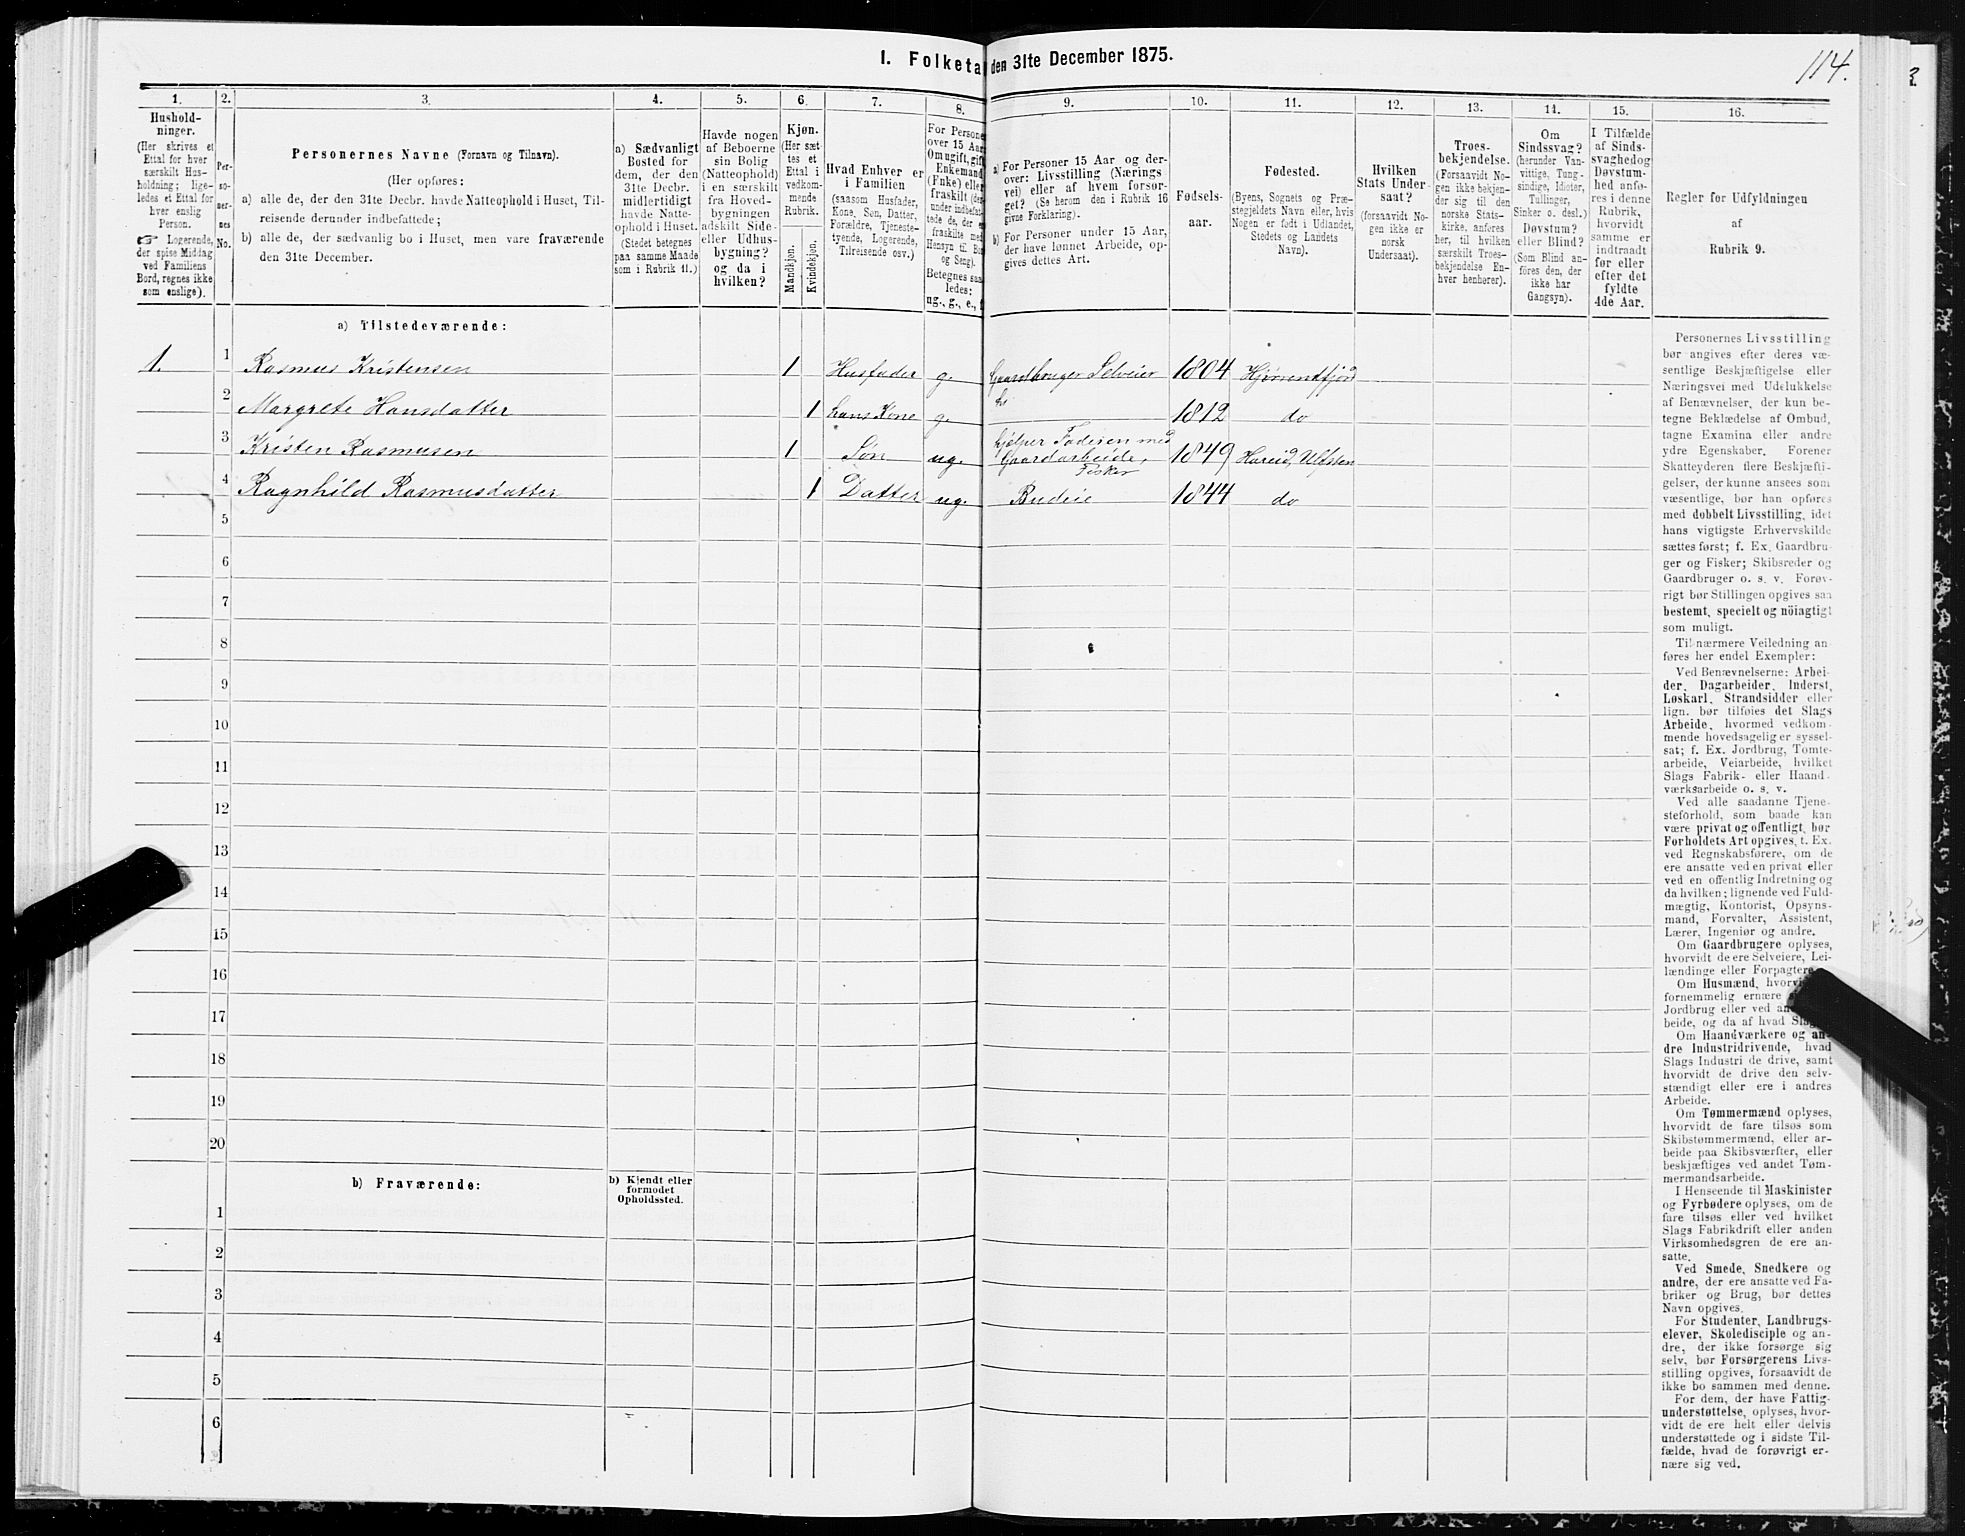 I. Folketa den 31te December 1875.
114.
1.
2.
3.
4.
5.
6.
7.
8.
9.
10.
11.
12.
13.
14.
15.
16.
Hushold-
ninger.
(Her skrives et
Ettal for hver
særskilt Hus-
holdning; lige-
ledes et Ettal for
hver enslig
Person.
☞ Logerende,
der spise Middag
ved Familiens
Bord, regnes ikke
som enslige).
Per-
so-
ner-
nes
No.
Personernes Navne (Fornavn og Tilnavn).
(Her opføres:
a) alle de, der den 31te Decbr. havde Natteophold i Huset, Til-
reisende derunder indbefattede;
b) alle de, der sædvanlig bo i Huset, men vare fraværende
den 31te December.
a) Sædvanligt
Bosted for
dem, der den
31te Decbr.
midlertidigt
havde Natte-
ophold i Huset.
(Stedet betegnes
paa samme Maade
som i Rubrik 11.)
Havde nogen
af Beboerne
sin Bolig
(Natteophold)
i en særskilt
fra Hoved-
bygningen
adskilt Side-
eller Udhus-
bygning?
og da i
hvilken?
Kjøn.
(Her sæt-
tes et
Ettal i
vedkom-
mende
Rubrik.
Mandkjøn.
Kvindekjøn.
Hvad Enhver er
i Familien
(saasom Husfader,
Kone, Søn, Datter,
Forældre, Tjeneste-
tyende, Logerende,
Tilreisende osv.)
For Personer
over 15 Aar:
Om ugift, gift,
Enkemand
(Enke) eller
fraskilt (der-
under indbefat-
tede de, der er
fraskilte med
Hensyn til Bo
og Seng).
Betegnes saa-
ledes:
ug., g., e., f
a) For Personer 15 Aar og der-
over: Livsstilling (Nærings
vei) eller af hvem forsør-
get? (Se herom den i Rubrik 16
givne Forklaring).
b) For Personer under 15 Aar,
der have lønnet Arbeide, op-
gives dettes Art.
Fødsels-
aar.
Fødested.
(Byens, Sognets og Præ-
stegjeldets Navn eller, hvis
Nogen er født i Udlandet,
Stedets og Landets
Navn).
Hvilken
Stats Under-
saat?
(forsaavidt No-
gen ikke er
norsk
Undersaat).
Troes-
bekjendelse.
(Forsaavidt No-
gen ikke bekjen-
der sig til den
norske Stats-
kirke, anføres
her, til hvilken
særskilt Troes-
bekjendelse En-
hver henhører).
Om
Sindssvag?
(herunder Van-
vittige, Tung-
sindige, Idioter,
Tullinger,
Sinker o. desl.)
Døvstum?
eller Blind?
(Som Blind an-
føres den, der
ikke har
Gangsyn).
I Tilfælde
af Sinds-
svaghed og
Døvstum-
hed anfø-
res i denne
Rubrik,
hvorvidt
samme er
indtraadt
før eller
efter det
fyldte
4de Aar.
Regler for Udfyldningen
af
Rubrik 9.
a) Tilstedeværende:
1. 1 Rasmus Kristensen 1 Husfader g. Gaardbruger Selveier 1804 Hjørrendfjord
2 Margrete Hansdatter 1 hans Kone g. 1812 do
3 Kristen Rasmusen 1 Søn ug. hjelper Faderen med Gaardarbeide, Fisker 1849 Hareid, Ulfsten
4 Ragnhild Rasmusdatter 1 Datter ug. Budeie 1844 do
5
6
7
8
9
10
11
12
13
14
15
16
17
18
19
20
b) Fraværende:
b) Kjendt eller
formodet
Opholdssted.
1
2
3
4
5
6
Personernes Livsstilling
bør angives efter deres væ-
sentlige Beskjæftigelse eller
Næringsvei med Udelukkelse
af Benævnelser, der kun be-
tegne Beklædelse af Ombud,
tagne Examina eller andre
ydre Egenskaber. Forener
Skatteyderen flere Beskjæfti-
gelser, der kunne ansees som
væsentlige, bør han opføres
med dobbelt Livsstilling, idet
hans vigtigste Erhvervskilde
sættes først; f. Ex. Gaardbru-
ger og Fisker; Skibsreder og
Gaardbruger o. s. v. Forøv-
rigt bør Stillingen opgives saa
bestemt, specielt og nöiagtigt
som muligt.
Til nærmere Veiledning an-
føres her endel Exempler:
Ved Benævnelserne: Arbei-
der, Dagarbeider, Inderst,
Løskarl, Strandsidder eller
lign. bør tilføies det Slags
Arbeide, hvormed vedkom-
mende hovedsagelig er syssel-
sat; f. Ex. Jordbrug, Tomte-
arbeide, Veiarbeide, hvilket
Slags Fabrik- eller Haand-
værksarbeide o. s. v.
Ved alle saadanne Tjene-
steforhold, som baade kan
være privat og offentligt, bør
Forholdets Art opgives, t. Ex.
ved Regnskabsførere, om de
ere ansatte ved en privat eller
ved en offentlig Indretning og
da hvilken; lignende ved Fuld-
mægtig, Kontorist, Opsyns-
mand, Forvalter, Assistent,
Lærer, Ingeniør og andre.
Om Gaardbrugere oplyses,
hvorvidt de ere Selveiere, Lei-
lændinge eller Forpagtere
Om Husmænd, hvorvi
fornemmelig ernære
Jordbrug eller ved an
beide, og da af hvad Slag
Om Haandværkere og an-
dre Industridrivende, hvad
Slags Industri de drive, samt
hvorvidt de drive den selv-
stændigt eller ere i andres
Arbeide.
Om Tømmermænd oplyses,
hvorvidt de fare tilsøs som
Skibstømmermænd, eller ar-
beide paa Skibsværfter, eller
beskjæftiges ved andet Tøm-
mermandsarbeide.
I Henseende til Maskinister
og Fyrbødere oplyses, om de
fare tilsøs eller ved hvilket
Slags Fabrikdrift eller anden
Virksomhedsgren de ere an-
satte.
Ved Smede, Snedkere og
andre, der ere ansatte ved Fa-
briker og Brug, bør dettes
Navn opgives.
For Studenter, Landbrugs-
elever, Skoledisciple og an-
dre, der ikke forsørge sig
selv, bør Forsørgerens Livs-
stilling opgives, forsaavidt de
ikke bo sammen med denne.
For dem, der have Fattig-
understøttelse, oplyses, hvor-
vidt de ere helt eller delvis
understøttede og i sidste Til-
fælde, hvad de forøvrigt er-
nære sig ved.